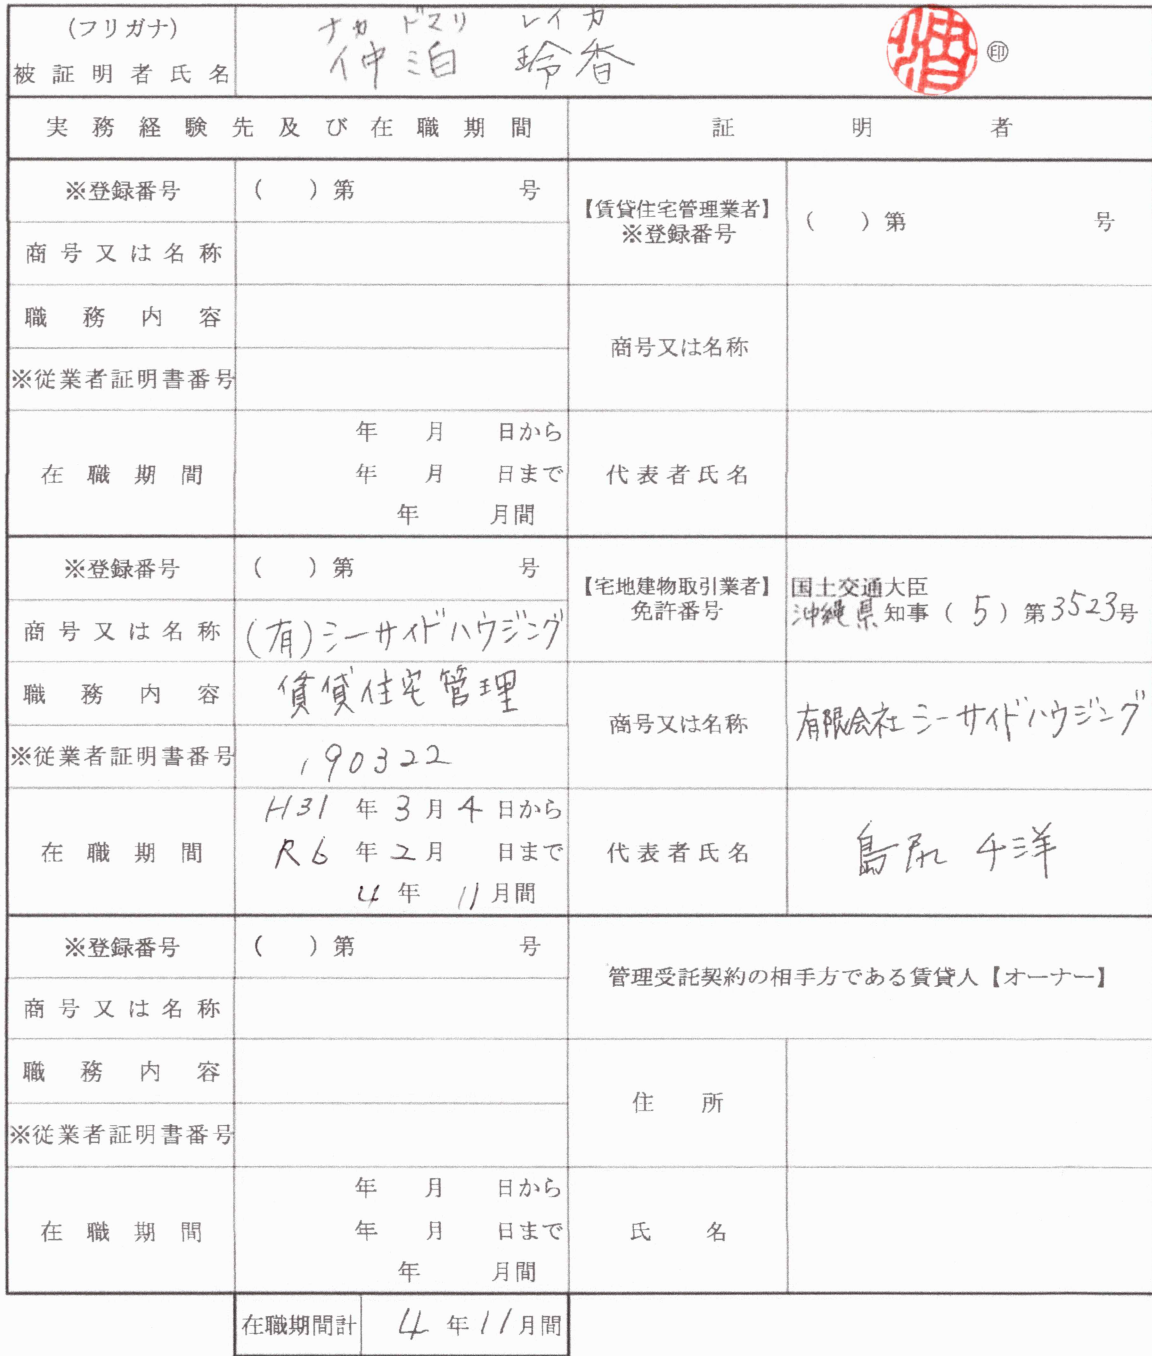 (フリガナ) ナカ ドマリ レイカ
被証明者氏名 仲泊 玲香 ㊞
実務経験先及び在職期間 証明者
※登録番号 ( )第 号
【賃貸住宅管理業者】
※登録番号 ( )第 号
商号又は名称
職務内容
商号又は名称
※従業者証明書番号
在職期間
年 月 日から
年 月 日まで
年 月間
代表者氏名
※登録番号 ( )第 号
【宅地建物取引業者】
免許番号
国土交通大臣
沖縄県知事(5)第3523号
商号又は名称 (有)シーサイドハウジング
職務内容 賃貸住宅管理
商号又は名称 有限会社シーサイドハウジング
※従業者証明書番号 190322
在職期間
H31年3月4日から
R6年2月 日まで
4年11月間
代表者氏名 島尻 千洋
※登録番号 ( )第 号
管理受託契約の相手方である賃貸人【オーナー】
商号又は名称
職務内容
住所
※従業者証明書番号
在職期間
年 月 日から
年 月 日まで
年 月間
氏名
在職期間計 4年11月間